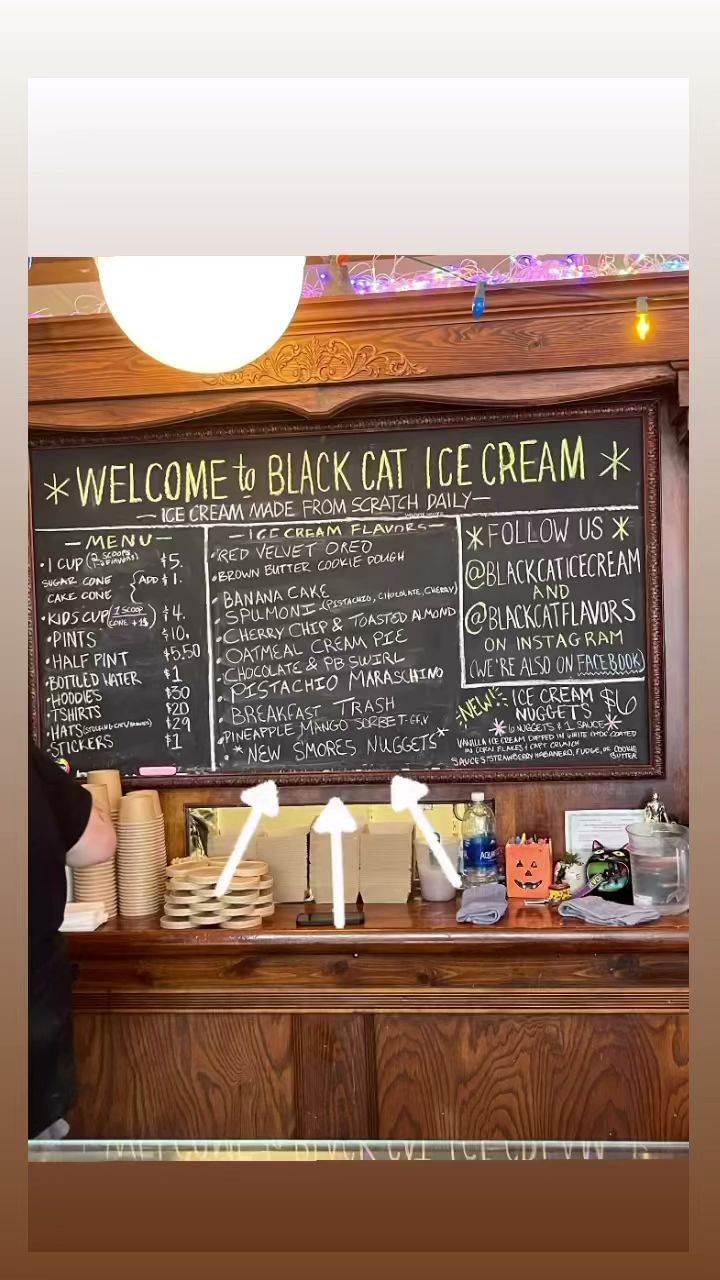 * WELCOME to BLACK CAT ICE CREAM *
— ICE CREAM MADE FROM SCRATCH DAILY —
— MENU —
• 1 CUP (2 SCOOPS $5.
SUGAR CONE
CAKE CONE
ADD $1.
• KIDS CUP (1 SCOOP $4.
CONE +1$)
• PINTS $10.
• HALF PINT $5.50
• BOTTLED WATER $1
• HOODIES $30
• TSHIRTS $20
• HATS $29
• STICKERS $1
— ICE CREAM FLAVORS —
• RED VELVET OREO
• BROWN BUTTER COOKIE DOUGH
• BANANA CAKE
• SPUMONI (PISTACHIO, CHOCOLATE, CHERRY)
• CHERRY CHIP & TOASTED ALMOND
• OATMEAL CREAM PIE
• CHOCOLATE & PB SWIRL
• PISTACHIO MARASCHINO
• BREAKFAST TRASH
• PINEAPPLE MANGO SORBET - GF, V
* NEW S'MORES NUGGETS *
* FOLLOW US *
@BLACKCATICECREAM
AND
@BLACKCATFLAVORS
ON INSTAGRAM
(WE'RE ALSO ON FACEBOOK)
NEW! ICE CREAM $6
NUGGETS
* 6 NUGGETS & 1 SAUCE *
VANILLA ICE CREAM DIPPED IN WHITE CHOC COATED
IN CORN FLAKES & CAP'T CRUNCH
SAUCES: STRAWBERRY HABANERO, FUDGE, OR COOKIE
BUTTER